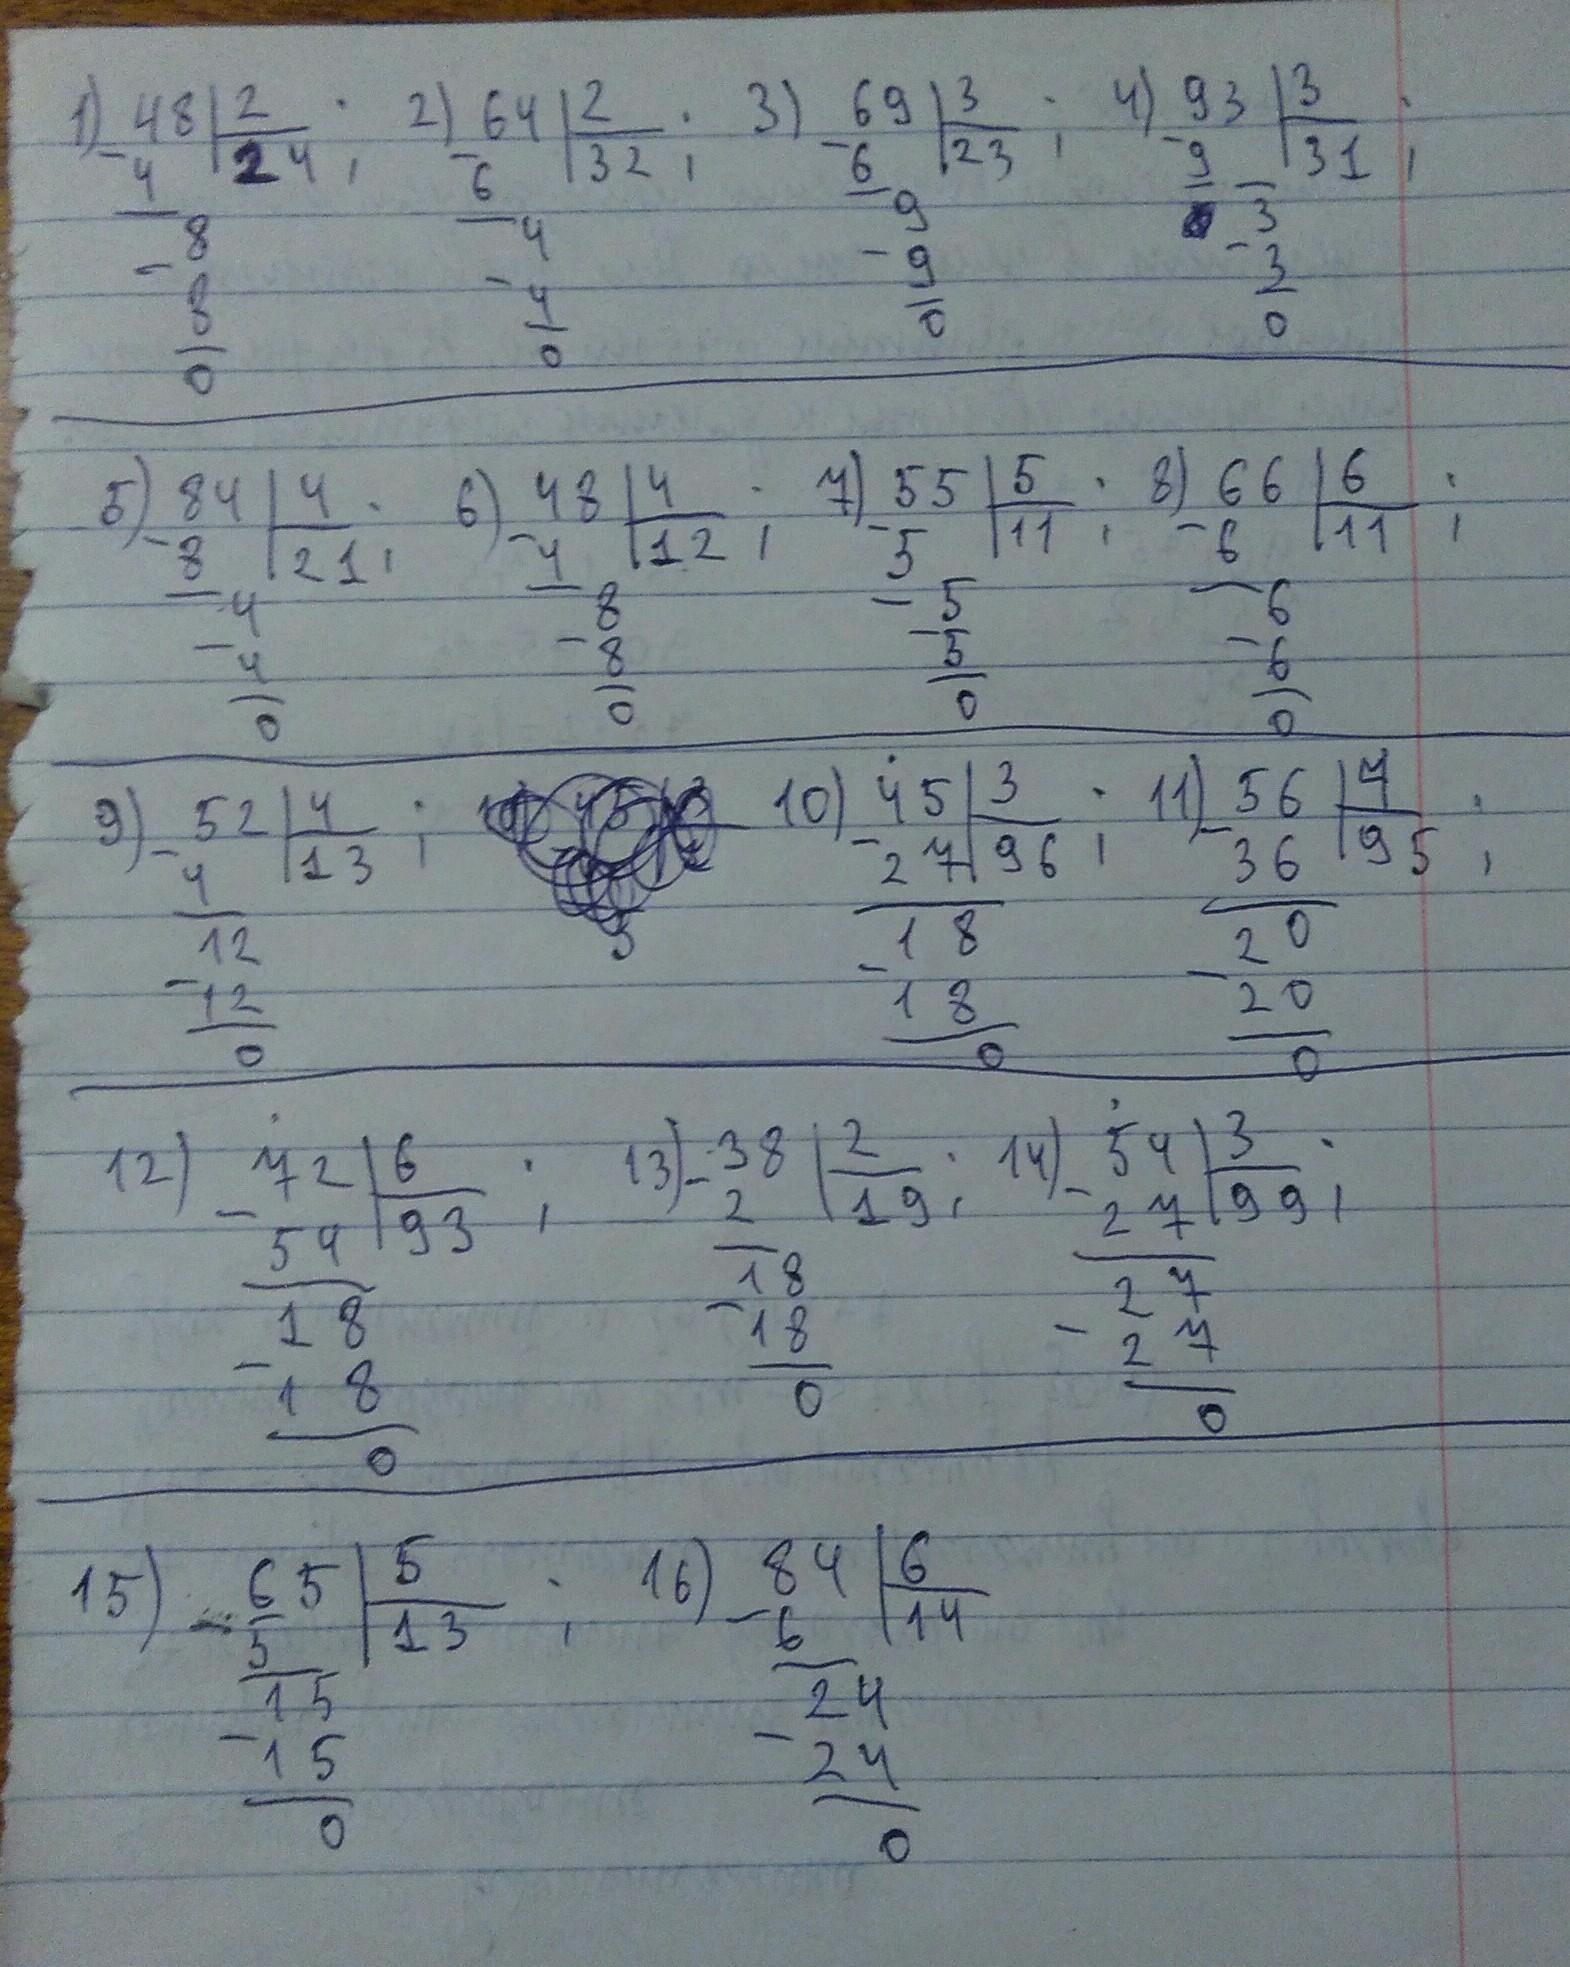 1) 48 | 2 ; 2) 64 | 2 ; 3) 69 | 3 ; 4) 93 | 3 ;
- 4 | 24 - 6 | 32 - 6 | 23 - 9 | 31
8 4 9 3
- 8 - 4 - 9 - 3
0 0 0 0
5) 84 | 4 ; 6) 48 | 4 ; 7) 55 | 5 ; 8) 66 | 6 ;
- 8 | 21 - 4 | 12 - 5 | 11 - 6 | 11
4 8 5 6
- 4 - 8 - 5 - 6
0 0 0 0
9) 52 | 4 ; 10) 45 | 3 ; 11) 56 | 4 ;
- 4 | 13 - 27 | 96 - 36 | 95
12 18 20
- 12 - 18 - 20
0 0 0
12) 72 | 6 ; 13) 38 | 2 ; 14) 54 | 3 ;
- 54 | 93 - 2 | 19 - 27 | 99
18 18 27
- 18 - 18 - 27
0 0 0
15) 65 | 5 ; 16) 84 | 6
- 5 | 13 - 6 | 14
15 24
- 15 - 24
0 0